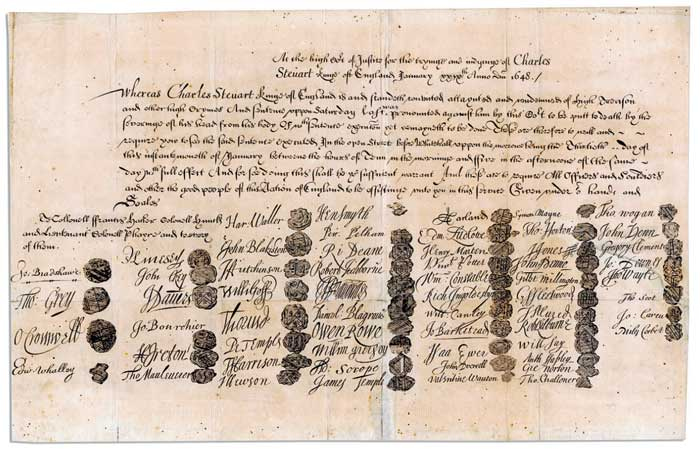 At the high Cort of Justice for the tryinge and iudginge of Charles
Steuart Kinge of England January xxixth Anno Dni 1648./
Whereas Charles Steuart Kinge of England is and standeth convicted attaynted and condemned of High Treason
and other high Crymes And sentence uppon Saturday last was pronounced against him by this Cort to be putt to death by the
severinge of his head from his body Of wch sentence execucon yet remayneth to be done These are therefore to will and
require you to see the said sentence executed In the open Streete before Whitehall uppon the morrowe being the Thirtieth day of
this instante moneth of January betweene the houres of Tenn in the morninge and five in the afternoone of the same
day wth full effect And for soe doing this shall be yor sufficient warrant And these are to require All Officers and Souldiers
and other the good people of this Nation of England to be assistinge unto you in this service Given under or hands and
Seales
To Collonell ffrancis Hacker Colonell Huncks
and Lieutenant Colonell Phayre and to every
of them.
Jo: Bradshawe
Tho: Grey
O Cromwell
Edw: Whalley
John Okey
J Danvers
Jo Bourchier
H Ireton
Tho Mauleverer
Har: Waller
John Blakiston
J Hutchinson
Willi Goff
Pe Temple
T Harrison
J Hewson
Hen Smyth
Per: Pelham
Ri Deane
Robert Tichborne
Daniel Blagrave
Owen Rowe
William Purefoy
Ad: Scrope
James Temple
A Garland
Edm: Ludlowe
Henry Marten
Vinct Potter
Wm: Constable
Rich Ingoldesby
Will: Cawley
Jo Barkstead
Isaa Ewer
John Dixwell
Valentine Wauton
Symon Mayne
Tho: Horton
J Jones
John Penne
Gilbt Millington
G Fleetwood
J Alured
Robt Lilburne
Will: Say
Anth Stapley
Gre: Norton
Tho: Challoner
Tho: Wogan
John Venn
Gregory Clement
Jo: Downes
Tho Wayte
Tho: Scot
Jo: Carew
Miles Corbet